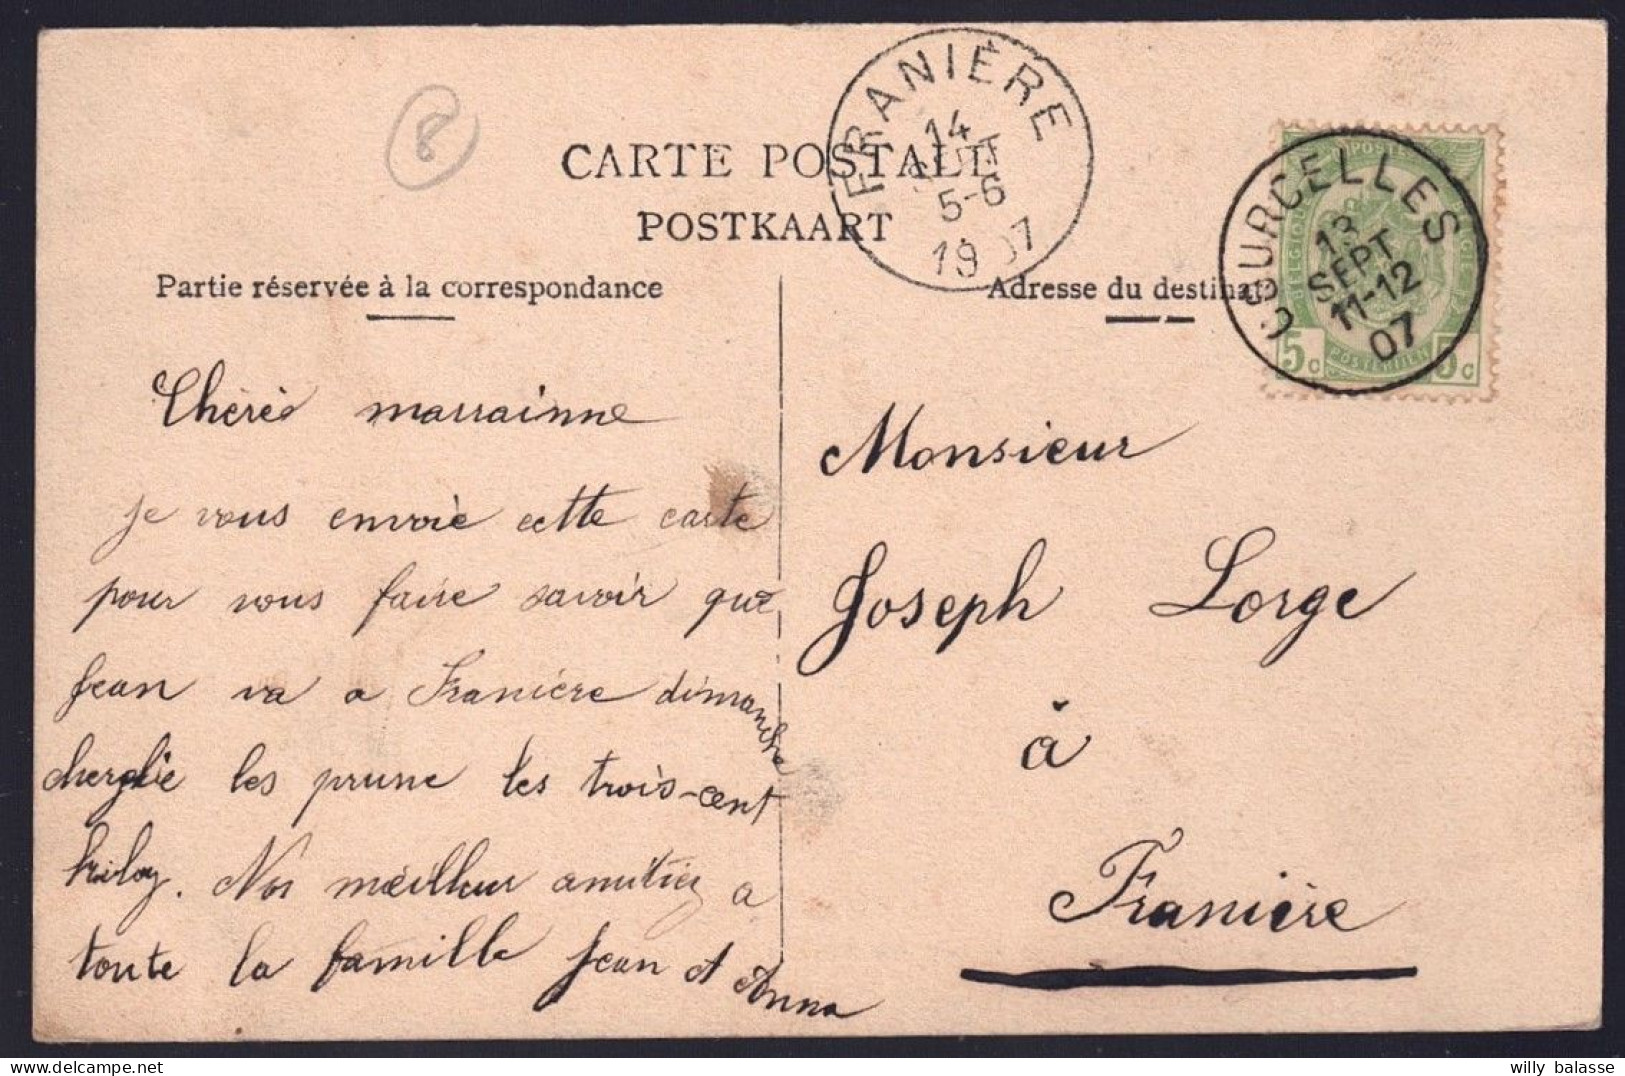 8
CARTE POSTALE
POSTKAART
FRANIÈRE
14
SEPT
5-6
1907
COURCELLES
13
SEPT
11-12
07
POSTERIJEN
5c 5c
Partie réservée à la correspondance
Adresse du destinat
Chéréé marrainne
je vous envoie cette carte
pour vous faire savoir que
jean va a Franière dimanche
les prune les trois-cent
kiloy. Nos meilleur amitiez a
toute la famille jean et Anna
Monsieur
Joseph Lorge
à
Franière
willy balasse